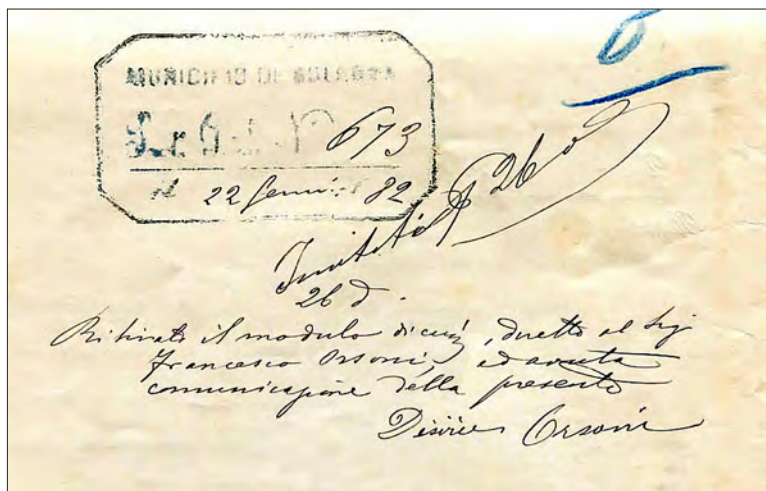 6
MUNICIPIO DI BOLOGNA
673
22 82
Invitato 26 d
26 d.
Ritirato il modulo di cui, diretto al Sig
Francesco Orsoni, ed avuta
comunicazione della presente
Orsoni